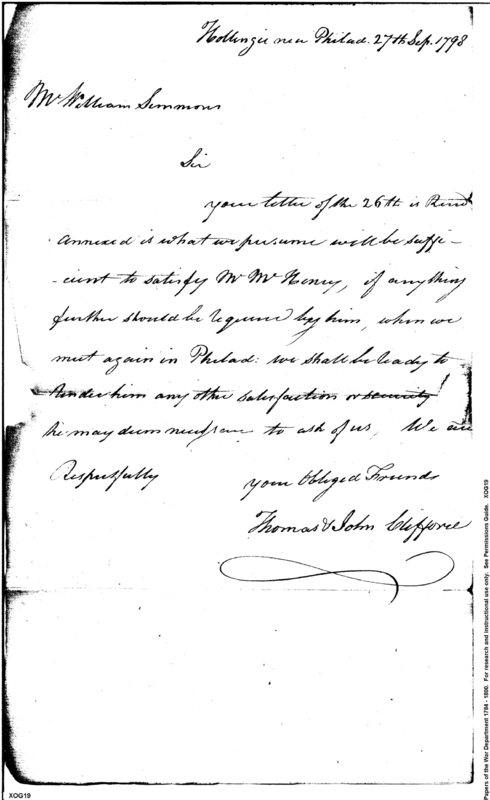 Hollingse near Philad. 27th Sep. 1798
Mr William Simmons
Sir
your letter of the 26th is Recd
annexed is what we presume will be suffi-
-cient to satisfy Mr McHenry, if anything
further should be required by him, when we
meet again in Philad: we shall be ready to
render him any other satisfaction or security
he may deem necessary to ask of us, We are
Respectfully your Obliged Friends
Thomas & John Clifford
XOG19
Papers of the War Department 1784 - 1800. For research and instructional use only. See Permissions Guide. XOG19